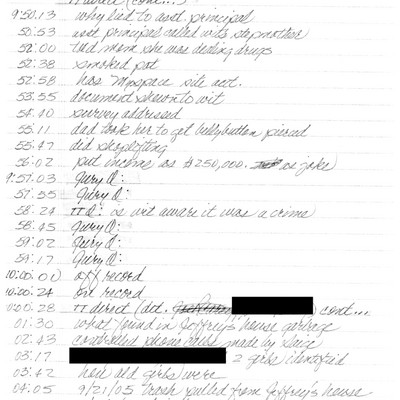 (cont...)
9:50:13 why lied to asst. principal
50:53 asst principal called wit's stepmother
52:00 told mom she was dealing drugs
52:38 smoked pot
52:58 has Myspace site acct.
53:55 document shown to wit
54:40 survey addressed
55:11 dad took her to get bellybutton pierced
55:47 did skydiving
56:02 put income as $250,000. as joke)
9:57:03 Jury Q:
57:55 Jury Q:
58:24 π Q: is wit aware it was a crime
58:45 Jury Q:
59:02 Jury Q:
59:17 Jury Q:
10:00:01) off record
10:00:24 on record
10:00:28 π direct (det. cont...
01:30 what found in Joffrey's house garbage
02:43 controlled phone calls made by
03:17 2 girls identified
03:42 how old girls were
04:05 9/21/05 trash pulled from Joffrey's house